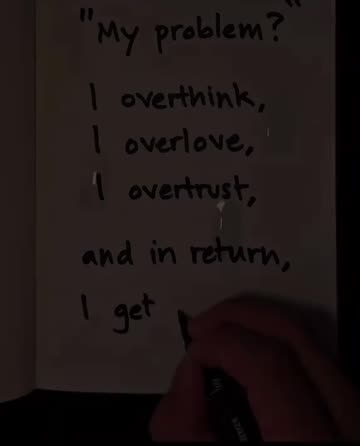 "My problem?"
I overthink,
I overlove,
I overtrust,
and in return,
I get